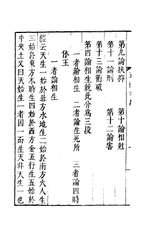 第九論扶抑　第十論相尅
第十一論刑　第十二論害
第十三論衝破
第四論相生就此分爲三段
一者論相生　二者論生死所　三者論四時
休王
一者論相生
經云天生一始於北方水地生二始於南方火人生
三始於東方木時生四始於西方金五行生五始於
中央土又曰天始生一者因一而生天非人生一也